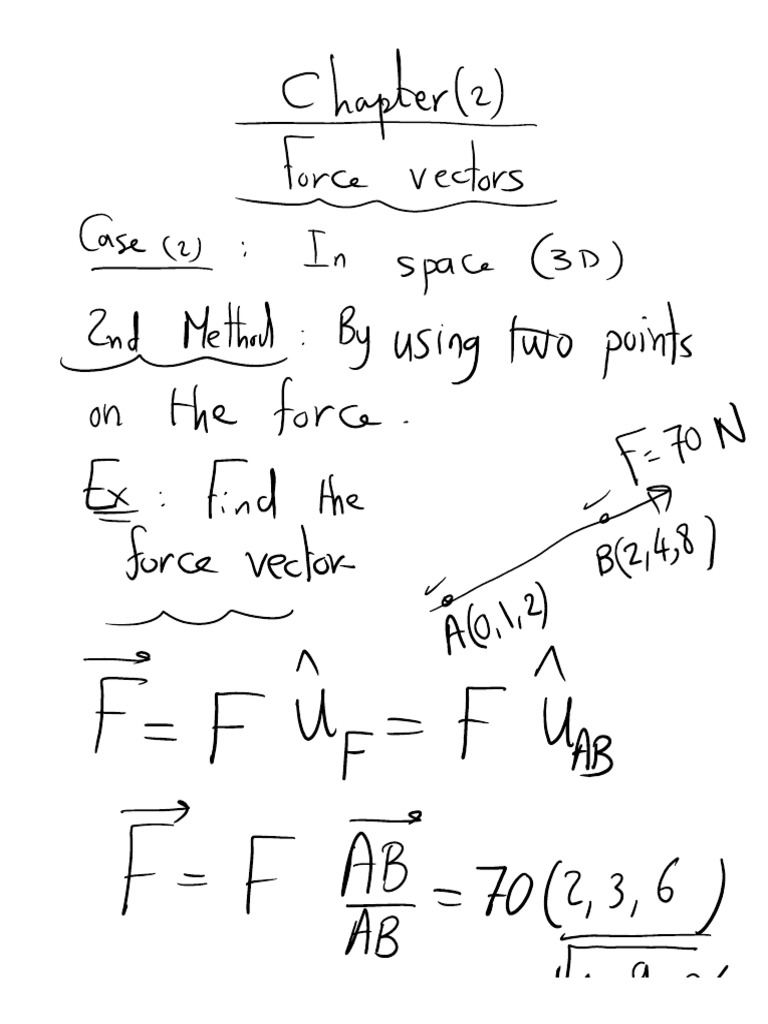 Chapter (2)
Force vectors
Case (2) : In space (3D)
2nd Method : By using two points
on the force.
F = 70 N
Ex : Find the
B(2,4,8)
force vector
A(0,1,2)
F = F û_F = F û_AB
F = F AB/AB = 70 (2, 3, 6)